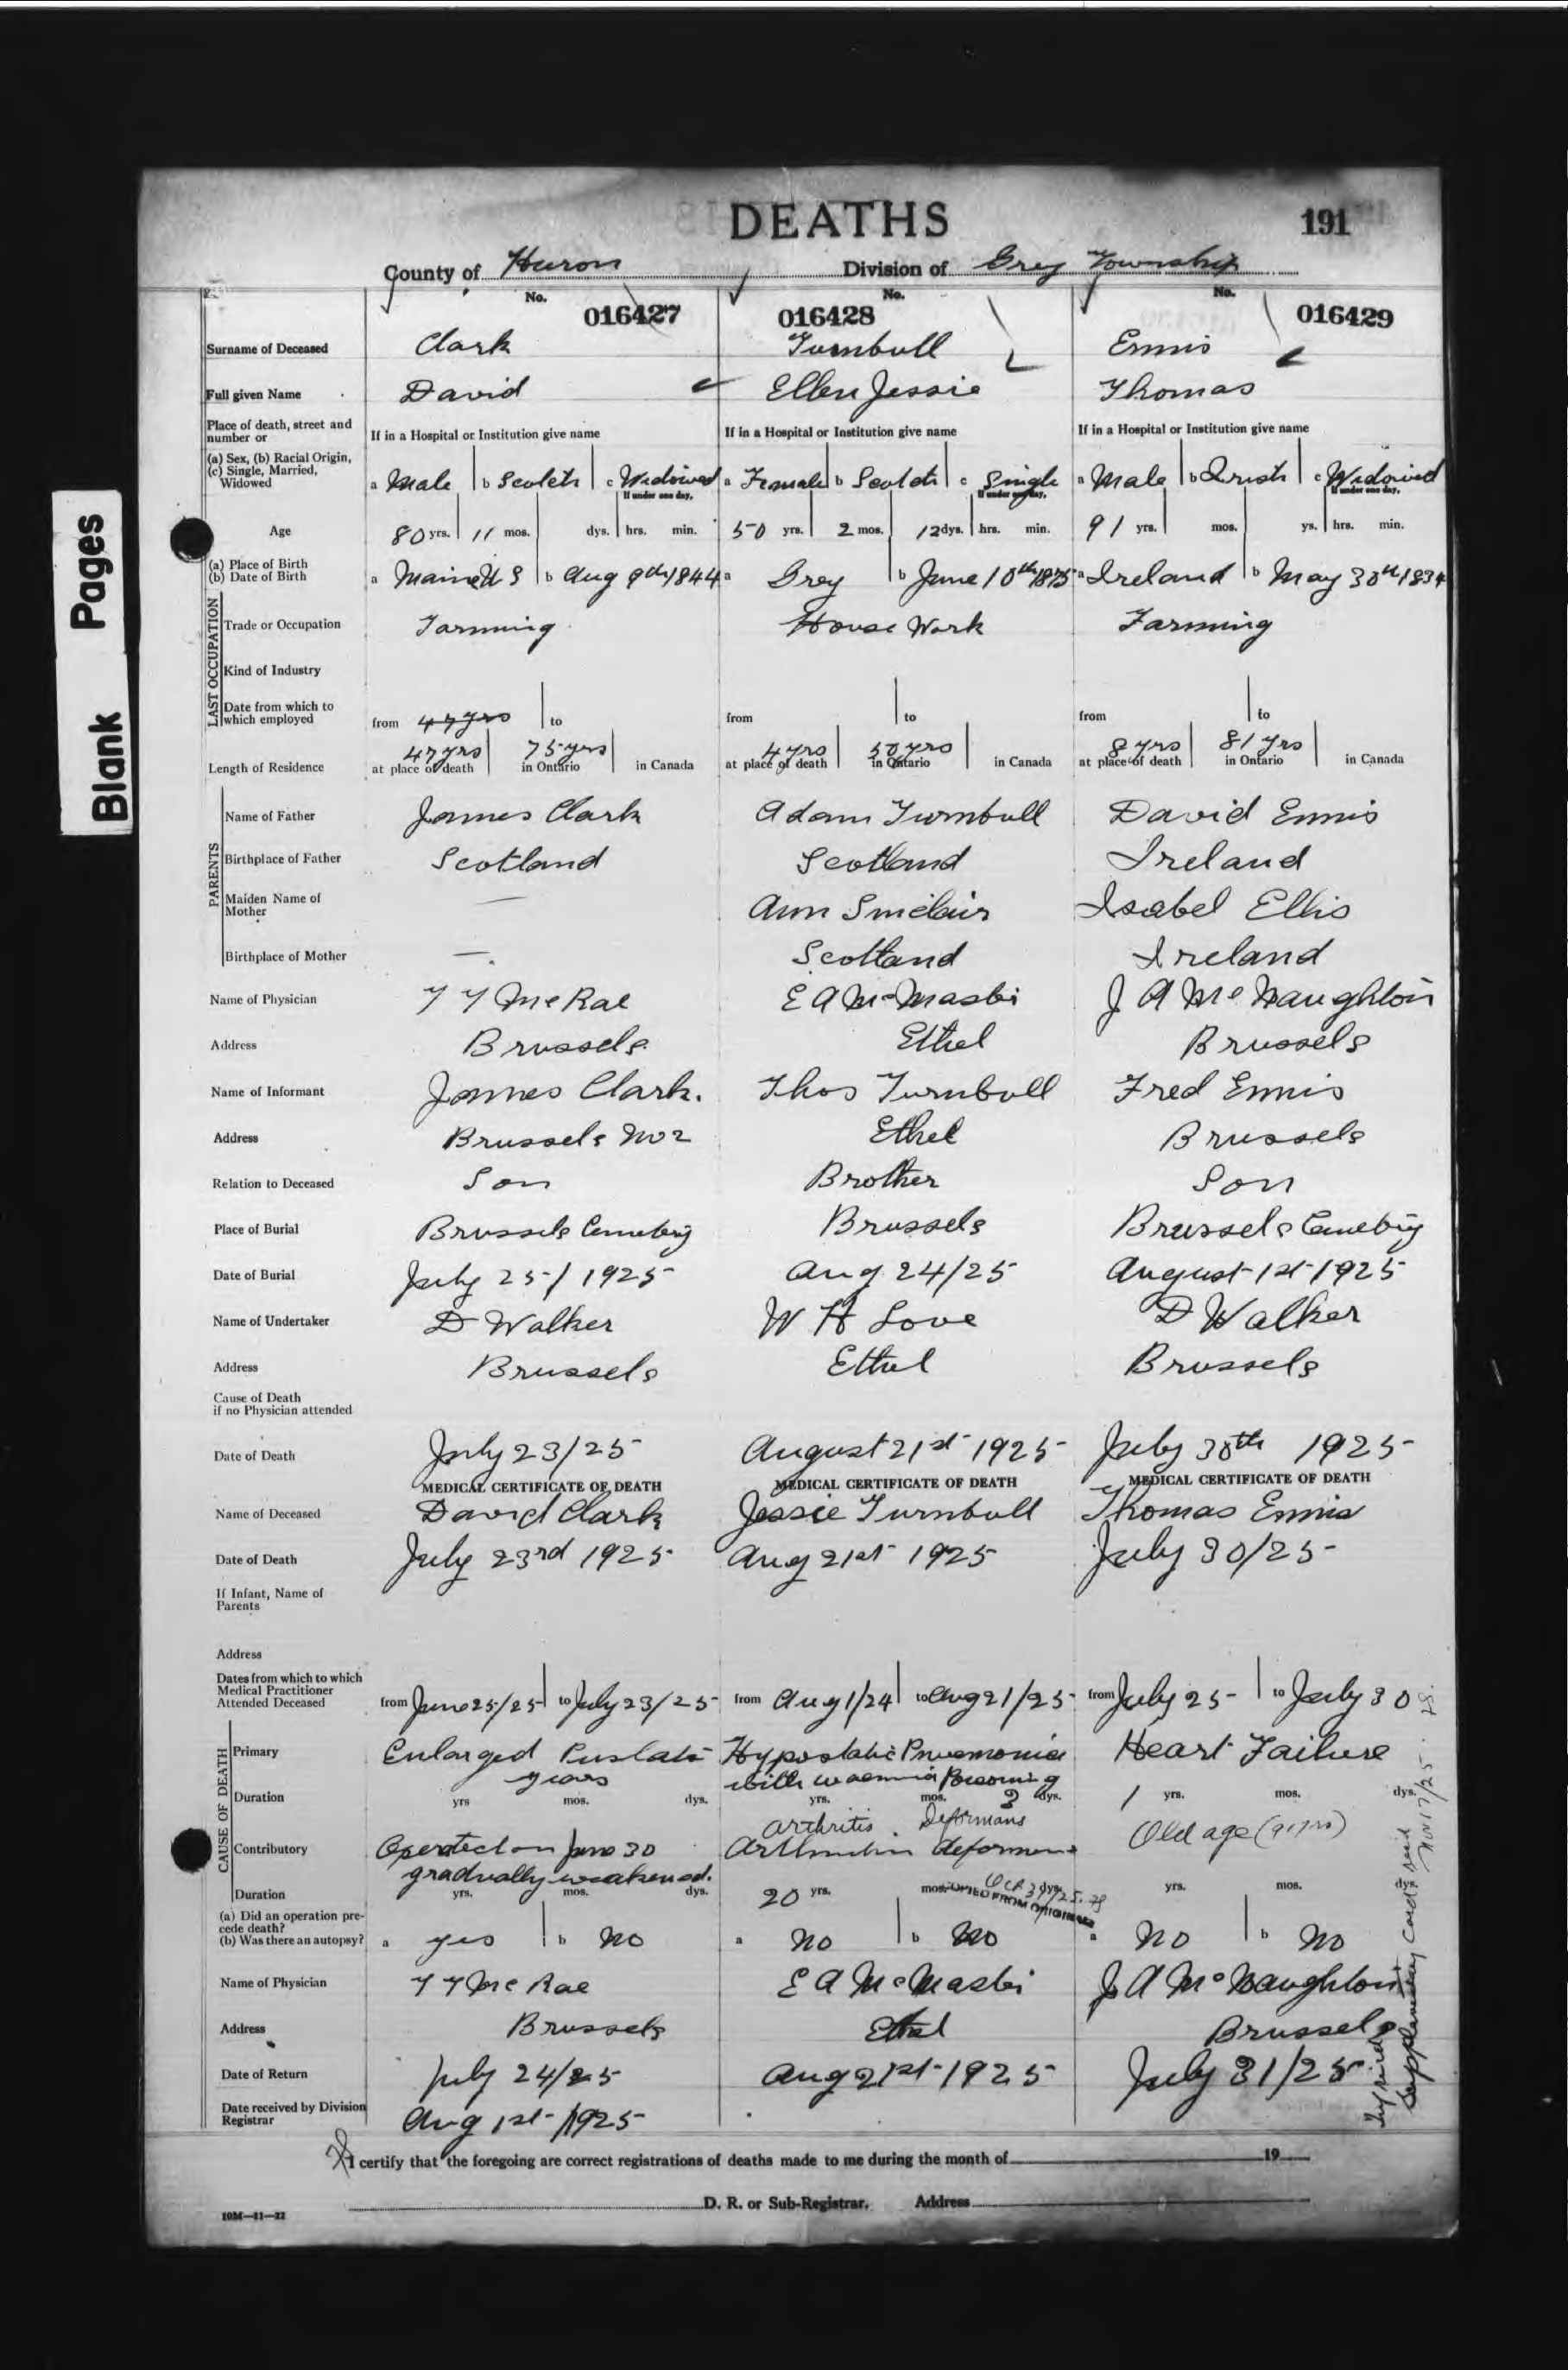 Blank Pages
DEATHS 191
County of Huron Division of Grey Township
No. 016427 No. 016428 No. 016429
Surname of Deceased Clark Turnbull Ennis
Full given Name David Ellen Jessie Thomas
Place of death, street and
number or If in a Hospital or Institution give name If in a Hospital or Institution give name If in a Hospital or Institution give name
(a) Sex, (b) Racial Origin,
(c) Single, Married,
Widowed a Male b Scotch c Widowed a Female b Scotch c Single a Male b Irish c Widowed
If under one day, If under one day, If under one day,
Age 80 yrs. 11 mos. dys. hrs. min. 50 yrs. 2 mos. 12 dys. hrs. min. 91 yrs. mos. ys. hrs. min.
(a) Place of Birth
(b) Date of Birth a Maine U S b Aug 9th 1844 a Grey b June 10th 1875 a Ireland b May 30th 1834
LAST OCCUPATION
Trade or Occupation Farming House Work Farming
Kind of Industry
Date from which to
which employed from 47 yrs to from to from to
47 yrs 75 yrs 4 yrs 50 yrs 8 yrs 81 yrs
Length of Residence at place of death in Ontario in Canada at place of death in Ontario in Canada at place of death in Ontario in Canada
PARENTS
Name of Father James Clark Adam Turnbull David Ennis
Birthplace of Father Scotland Scotland Ireland
Maiden Name of
Mother — Ann Sinclair Isabel Ellis
Birthplace of Mother — Scotland Ireland
Name of Physician T T McRae E A McMaster J A McNaughton
Address Brussels Ethel Brussels
Name of Informant James Clark. Thos Turnbull Fred Ennis
Address Brussels No 2 Ethel Brussels
Relation to Deceased Son Brother Son
Place of Burial Brussels Cemetery Brussels Brussels Cemetery
Date of Burial July 25/1925 Aug 24/25 August 1st 1925
Name of Undertaker D Walker W H Love D Walker
Address Brussels Ethel Brussels
Cause of Death
if no Physician attended
Date of Death July 23/25 August 21st 1925 July 30th 1925
MEDICAL CERTIFICATE OF DEATH MEDICAL CERTIFICATE OF DEATH MEDICAL CERTIFICATE OF DEATH
Name of Deceased David Clark Jessie Turnbull Thomas Ennis
Date of Death July 23rd 1925 Aug 21st 1925 July 30/25
If Infant, Name of
Parents
Address
Dates from which to which
Medical Practitioner
Attended Deceased from June 25/25 to July 23/25 from Aug 1/24 to Aug 21/25 from July 25 to July 30
CAUSE OF DEATH
Primary Enlarged Prostate Hypostatic Pneumonia Heart Failure
years with uraemia Poisoning
Duration yrs mos. dys. yrs. mos. 3 dys. 1 yrs. mos. dys.
Arthritis Deformans Old age (91 yrs)
Contributory Operated on June 30 Arthritis deformans
gradually weakened. Oct 30/25
Duration yrs. mos. dys. 20 yrs. mos. dys. yrs. mos. dys.
COPIED FROM ORIGINAL
(a) Did an operation pre-
cede death?
(b) Was there an autopsy? a yes b No a No b No a No b No
Name of Physician T T McRae E A McMaster J A McNaughton
Address Brussels Ethel Brussels
Date of Return July 24/25 Aug 21st 1925 July 31/25
Date received by Division
Registrar Aug 1st 1925
Supplementary Card
Nov 17/25
I certify that the foregoing are correct registrations of deaths made to me during the month of 19
D. R. or Sub-Registrar. Address
10M—11—22